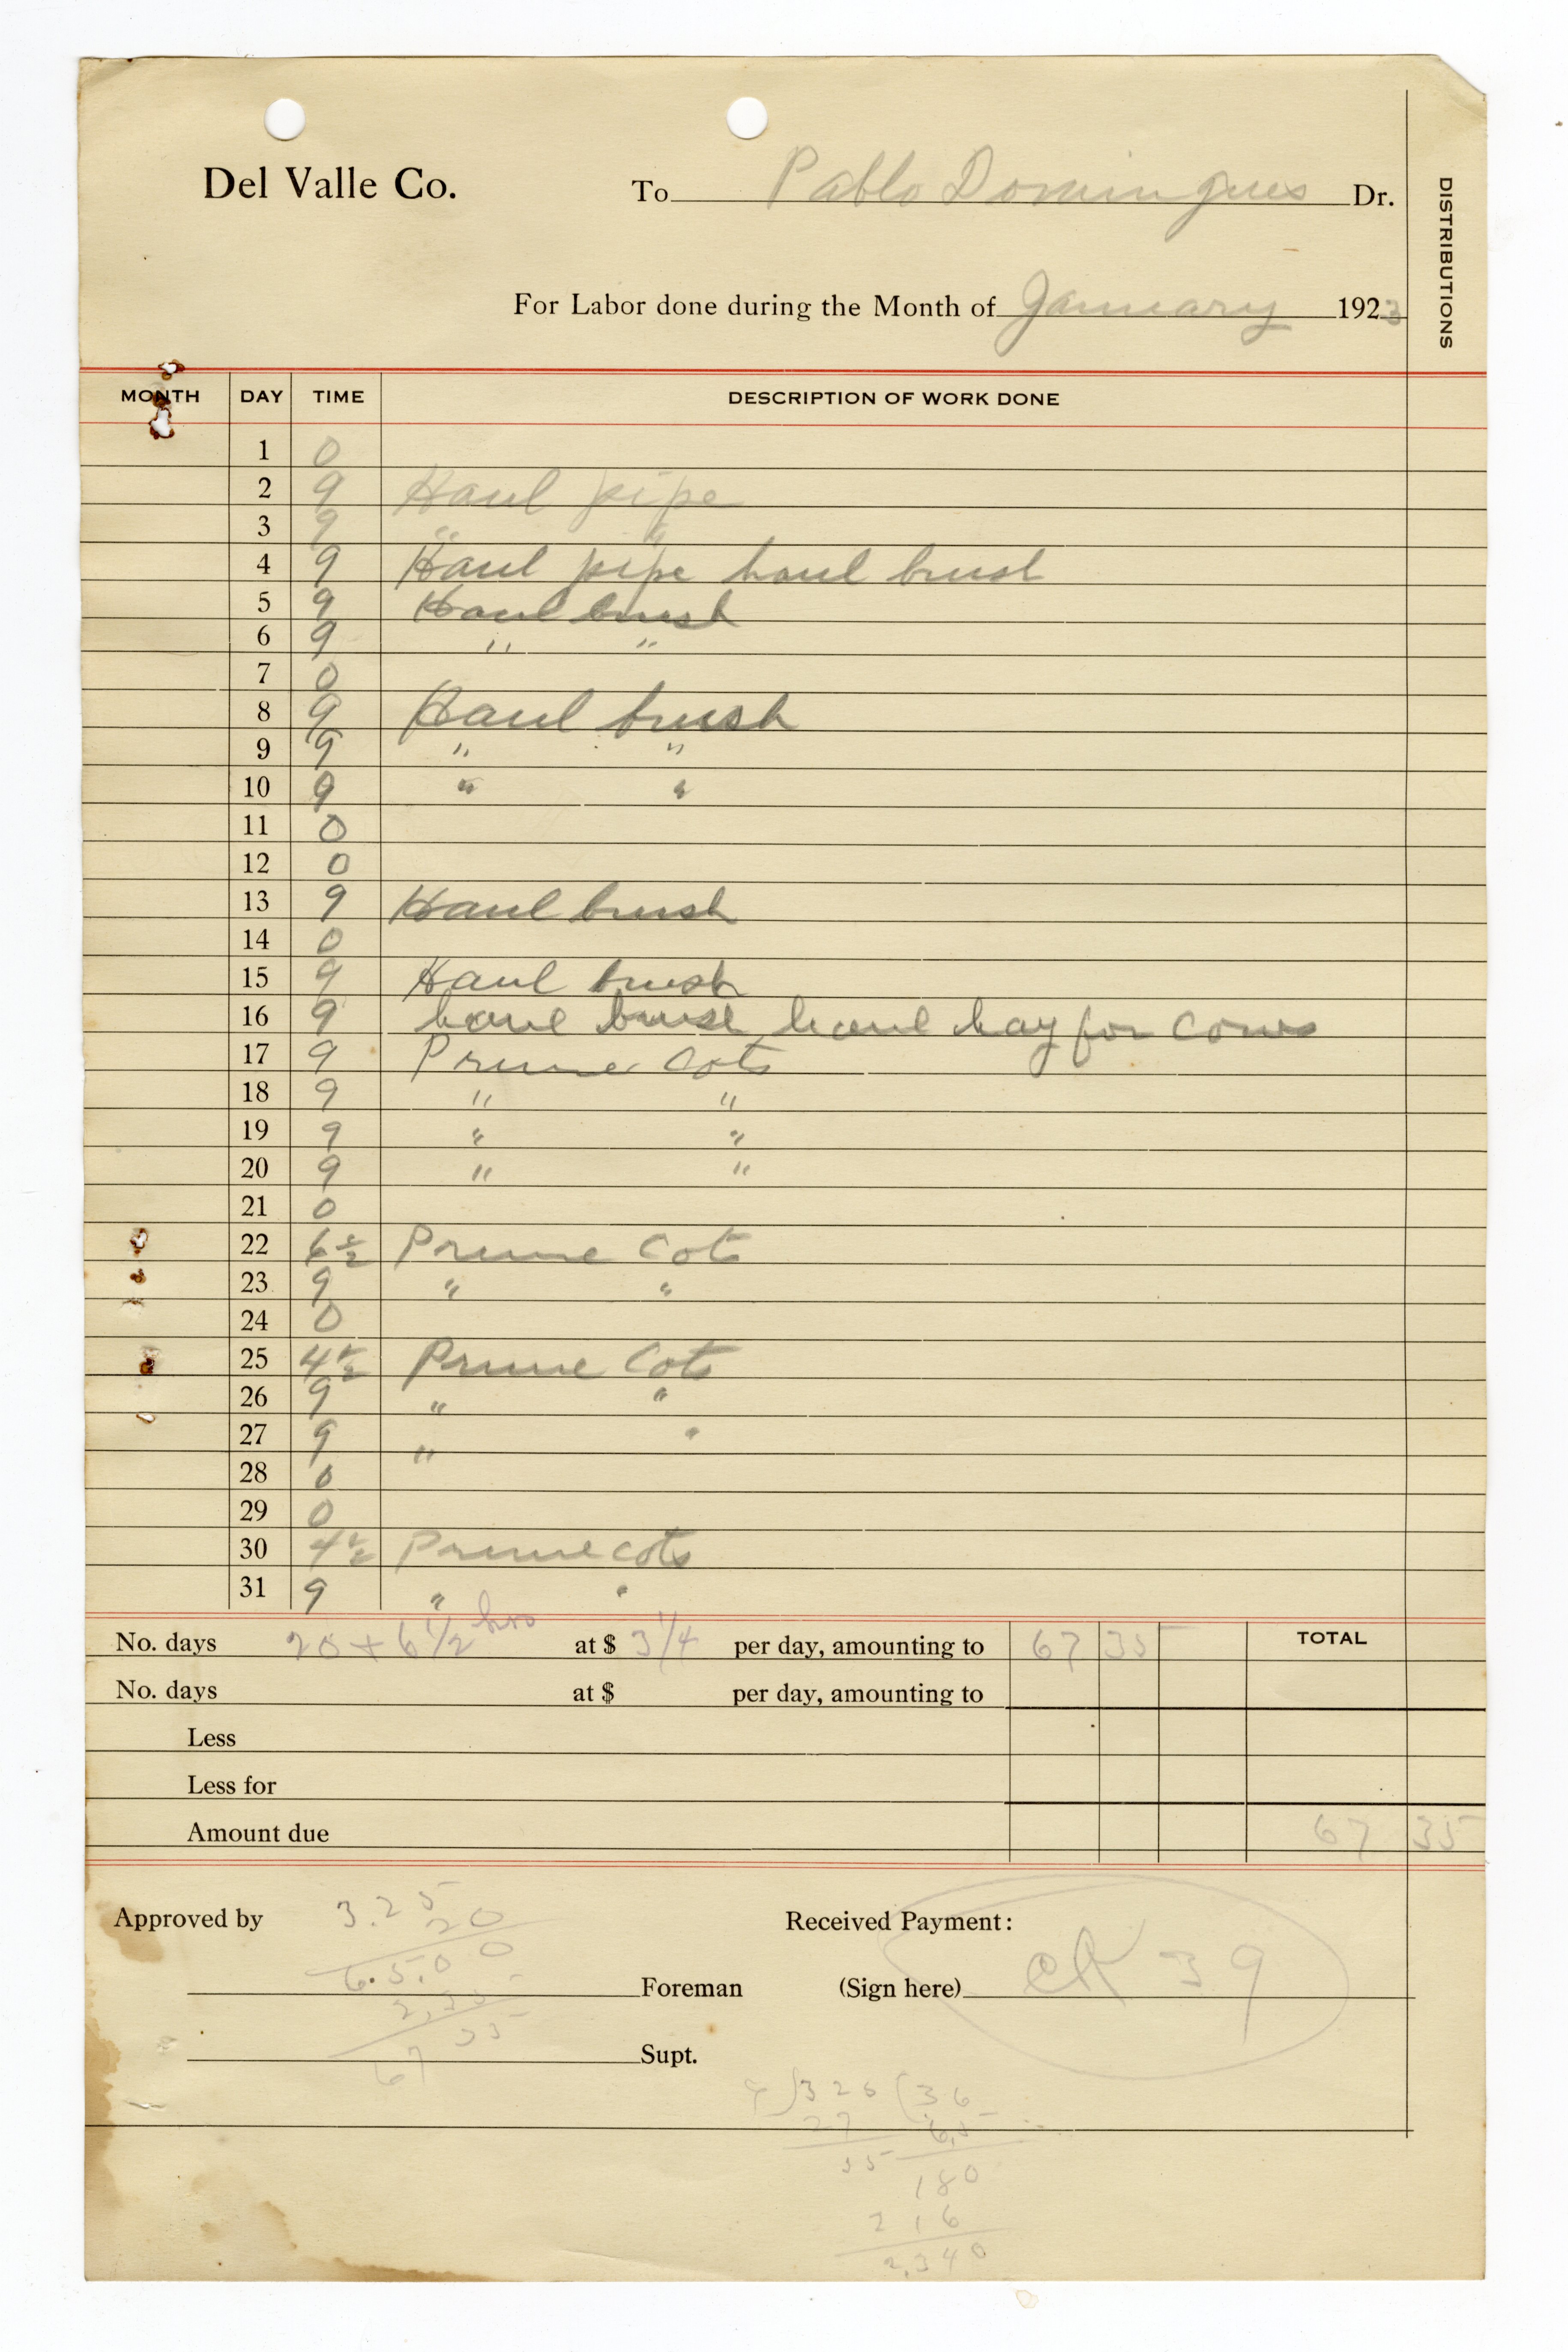 Del Valle Co. To Pablo Domingues Dr.
DISTRIBUTIONS
For Labor done during the Month of January 1923
MONTH DAY TIME DESCRIPTION OF WORK DONE
1 0
2 9 Haul pipe
3 9 " "
4 9 Haul pipe haul brush
5 9 Haul brush
6 9 " "
7 0
8 9 Haul brush
9 9 " "
10 9 " "
11 0
12 0
13 9 Haul brush
14 0
15 9 Haul brush
16 9 haul brush haul hay for cows
17 9 Prune Cots
18 9 " "
19 9 " "
20 9 " "
21 0
22 6½ Prune Cots
23 9 " "
24 0
25 4½ Prune Cots
26 9 " "
27 9 " "
28 0
29 0
30 4½ Prune cots
31 9 " "
No. days 20 + 6 1/2 hrs at $ 3 1/4 per day, amounting to 67 35 TOTAL
No. days at $ per day, amounting to
Less
Less for
Amount due 67 35
Approved by 3.25 Received Payment:
20
65.00
Foreman (Sign here) ck 39
2.35
67 35
Supt.
9)325(36
27 6.5
55 180
216
2.340